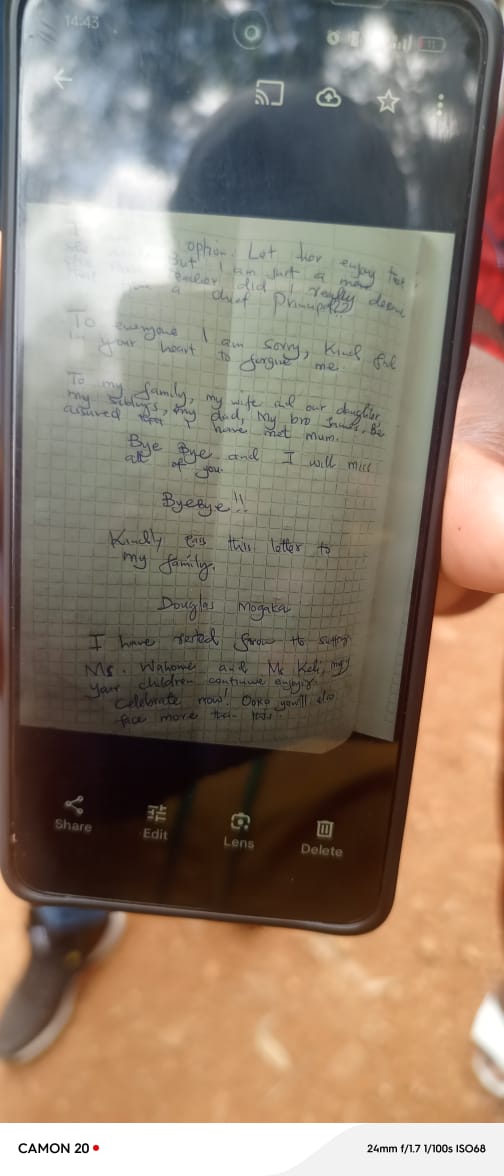 14:43
option. Let her enjoy that
But I am just a
did I really
a chief Principal!!
To everyone I am sorry, Kind
your heart to forgive me.
To my family, my wife and our daughter,
my siblings, my dad, my bro James. Be
assured that have met mum.
Bye Bye and I will miss
all of you.
Byebye!!
Kindly pass this letter to
my family.
Douglas Mogaka
I have rested from the
Ms. Wahome and Ms Keli, may
your children continue
Celebrate now! you'll also
face more than
Share
Edit
Lens
Delete
CAMON 20
24mm f/1.7 1/100s ISO68